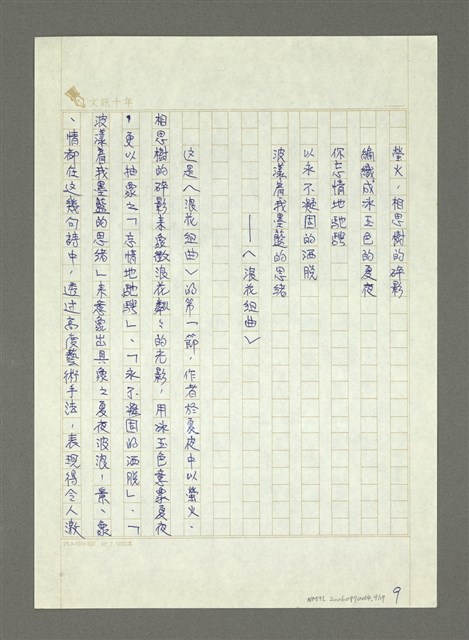 文訊十年
螢火，相思樹的碎影
編織成冰玉色的夏夜
你忘情地馳騁
以永不凝固的洒脫
波漾着我墨藍的思緒
——〈浪花組曲〉
這是〈浪花組曲〉的第一節，作者於夏夜中以螢火、
相思樹的碎影來象徵浪花點々的光影，用冰玉色意象夏夜
，更以抽象之「忘情地馳騁」、「永不凝固的洒脫」、「
波漾着我墨藍的思緒」來意象出具象之夏夜波浪！景、象
、情都在這幾句詩中，透过高度藝術手法，表現得令人激
9